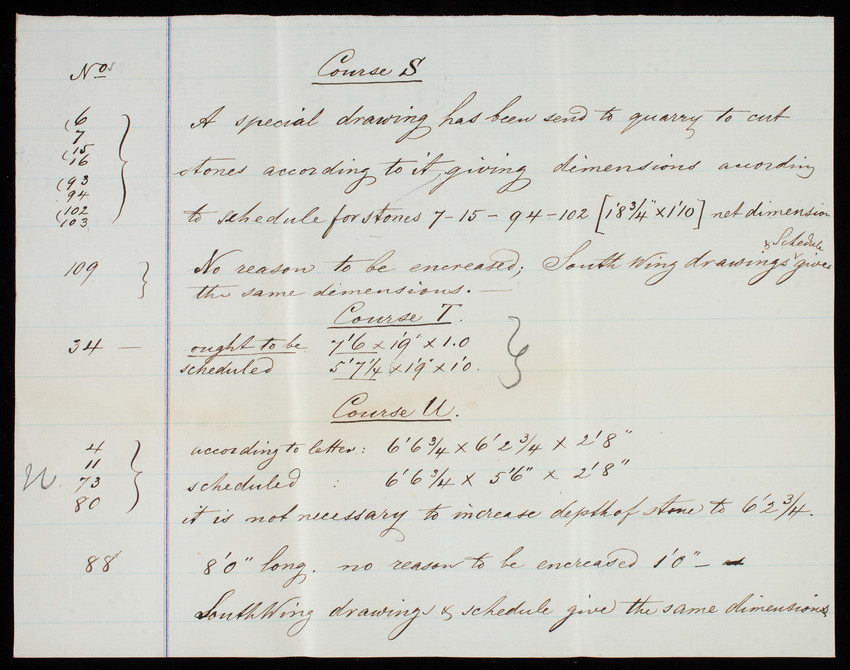 Nos Course S
(6
7
(15
16
(93
94
(102
103
A special drawing has been send to quarry to cut
stones according to it, giving dimensions acording
to schedule for stones 7-15-94-102 [1'8 3/4" x 1'10] net dimension
109 No reason to be encreased; South Wing drawings & Schedule gives
the same dimensions. —
Course T.
34 — ought to be 7'6 x 1'9" x 1.0
scheduled 5'7 1/4 x 1'9" x 1'0.
Course U.
4
11
73
80
according to letter: 6'6 3/4 x 6'2 3/4 x 2'8"
scheduled : 6'6 3/4 x 5'6" x 2'8"
it is not necessary to increase depth of stone to 6'2 3/4.
88 8'0" long. no reason to be encreased 1'0" —
South Wing drawings & schedule give the same dimensions